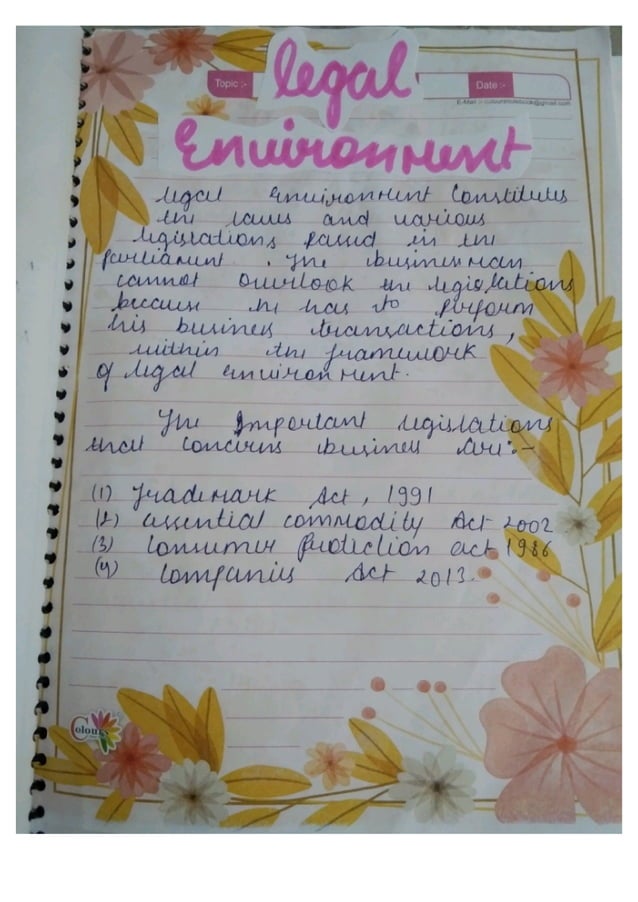 Topic :-
legal
Date :-
E-Mail :- coloursnotebook@gmail.com
Environment
legal Environment Constitutes
the laws and various
legislations passed in the
parliament . The businessman
cannot Overlook the legislations
because he has to perform
his business transactions ,
within the framework
of legal environment.
The Important legislations
that concerns business are:-
(1) Trademark Act, 1991
(2) essential commodity Act 2002
(3) Consumer Protection act 1986
(4) Companies Act 2013.
Colours